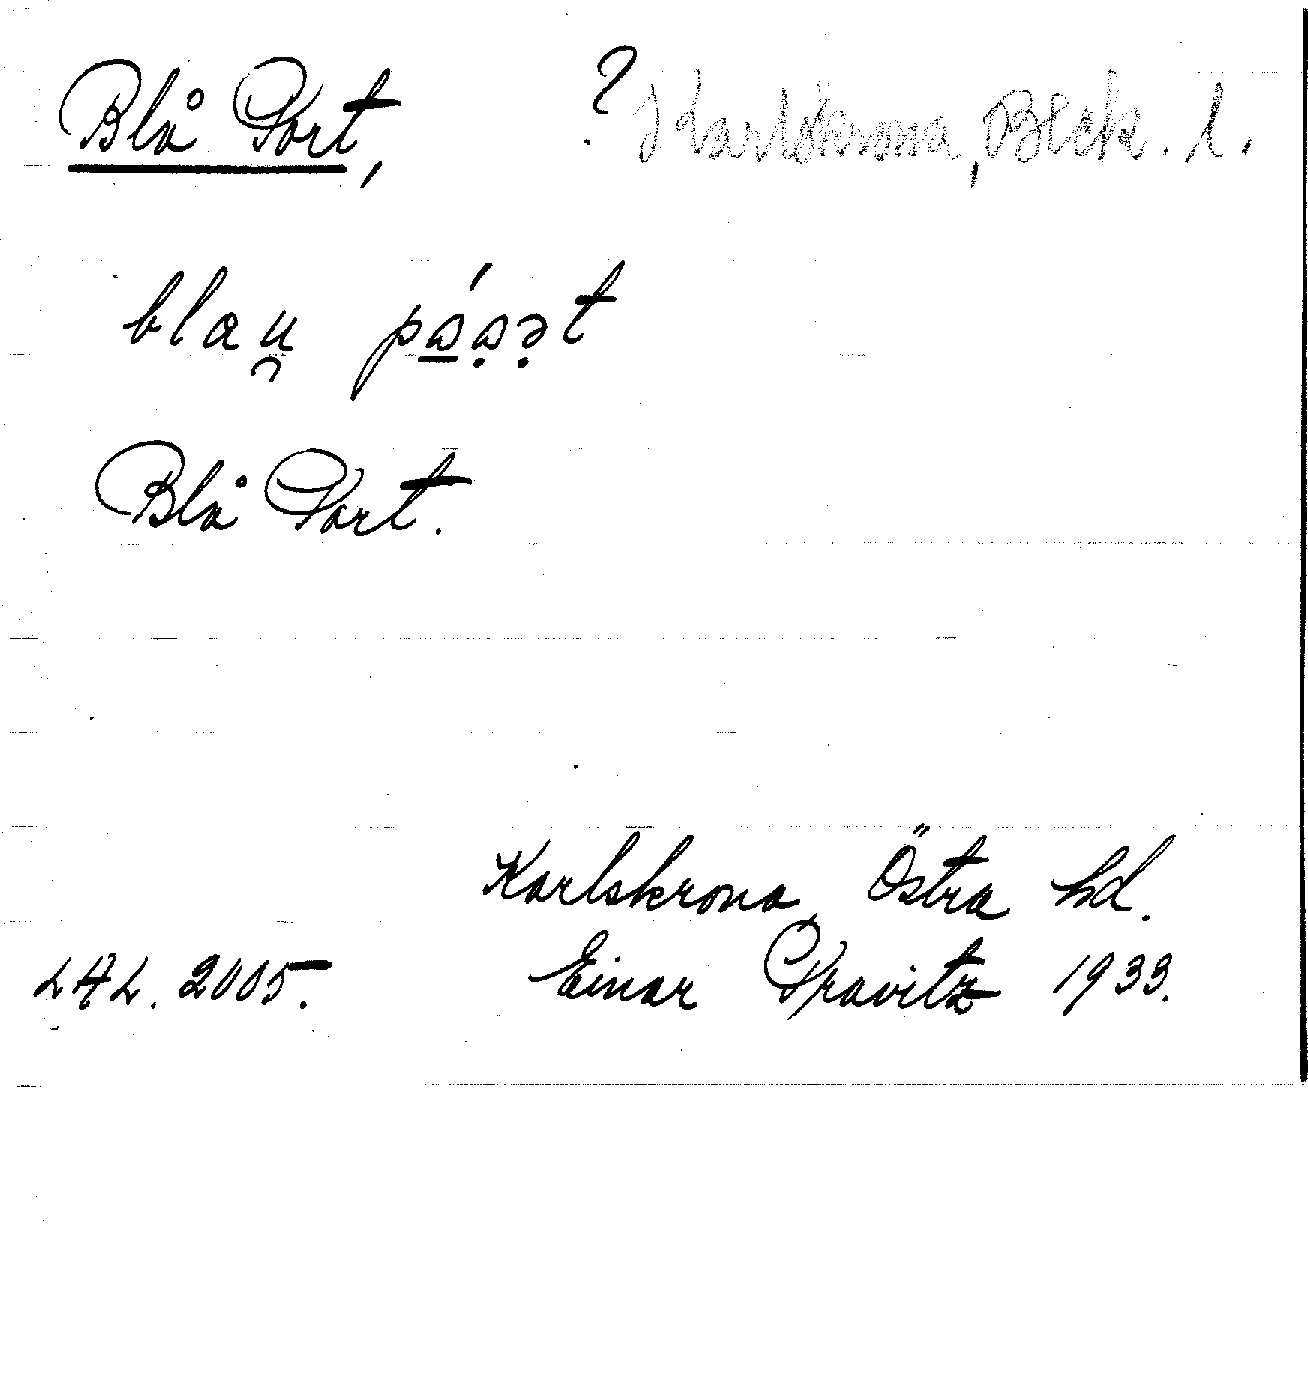 Blå Port, ? Karlskrona, Blek. l.
blau̯
Blå Port.
Karlskrona, Östra hd.
LAL. 2005. Einar Pravitz 1933.